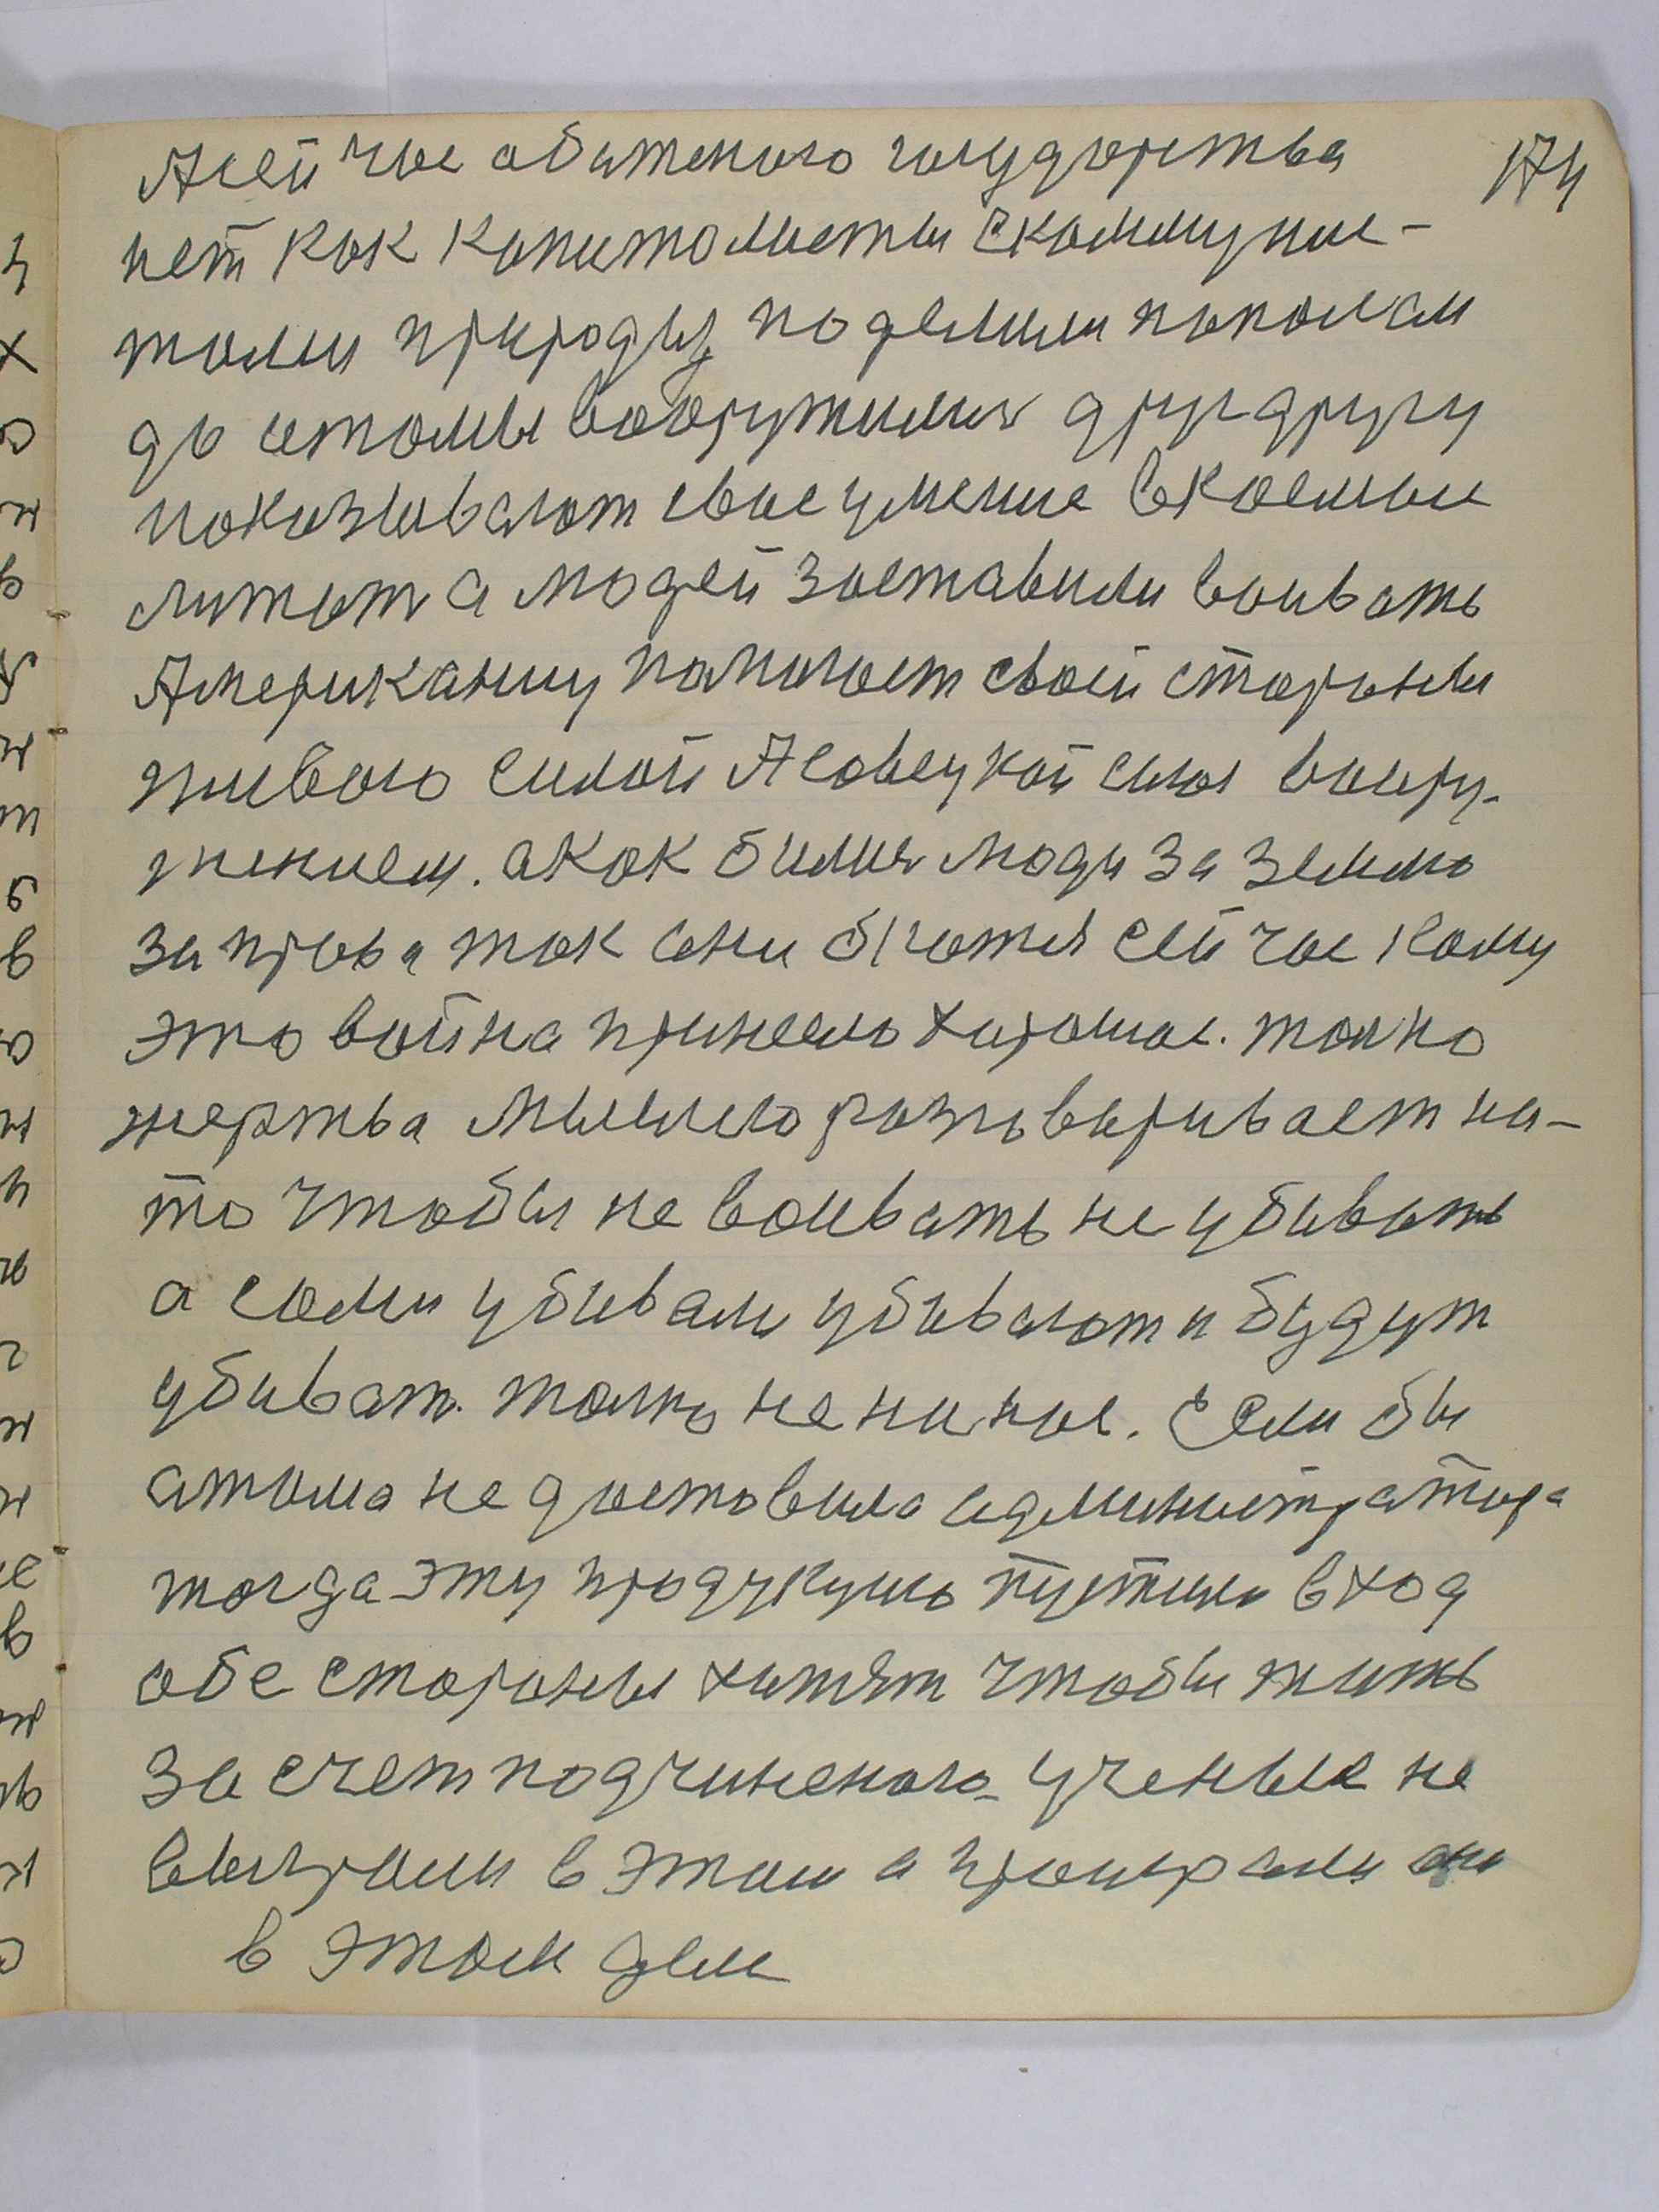 Асейчас обиженого государства 174
нет как копитолисты скоммунис-
тами природу поделили пополам
до атомы вооружились друг другу
показывают свое умение вкосмос
литать а людей заставили воивать
Американцу помогает своей стороны
живою силой Асовецкой сила воору-
жением. акак бились люди за землю
за права так они бются сейчас кому
это война принесло харошое. только
жертва Мышлло разговаривает на-
то чтобы не воивать не убивать
а сами убивали убивают и будут
убиват. только не ни нас. Если бы
атома не доставила администратора
тогда эту продукцию пустили вход
обе стороны хитят чтобы жить
за счет подчиненого ученые не
выграли в этом а проиграли они
в этом деле